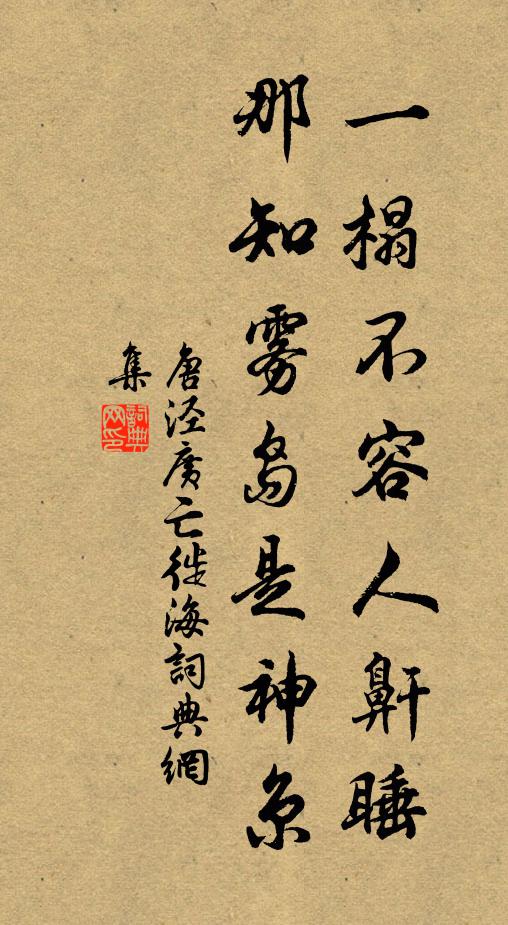 一榻不容人鼾睡
那知雾岛是神京
唐泾广亡徙海詞典網
集
詞典网印